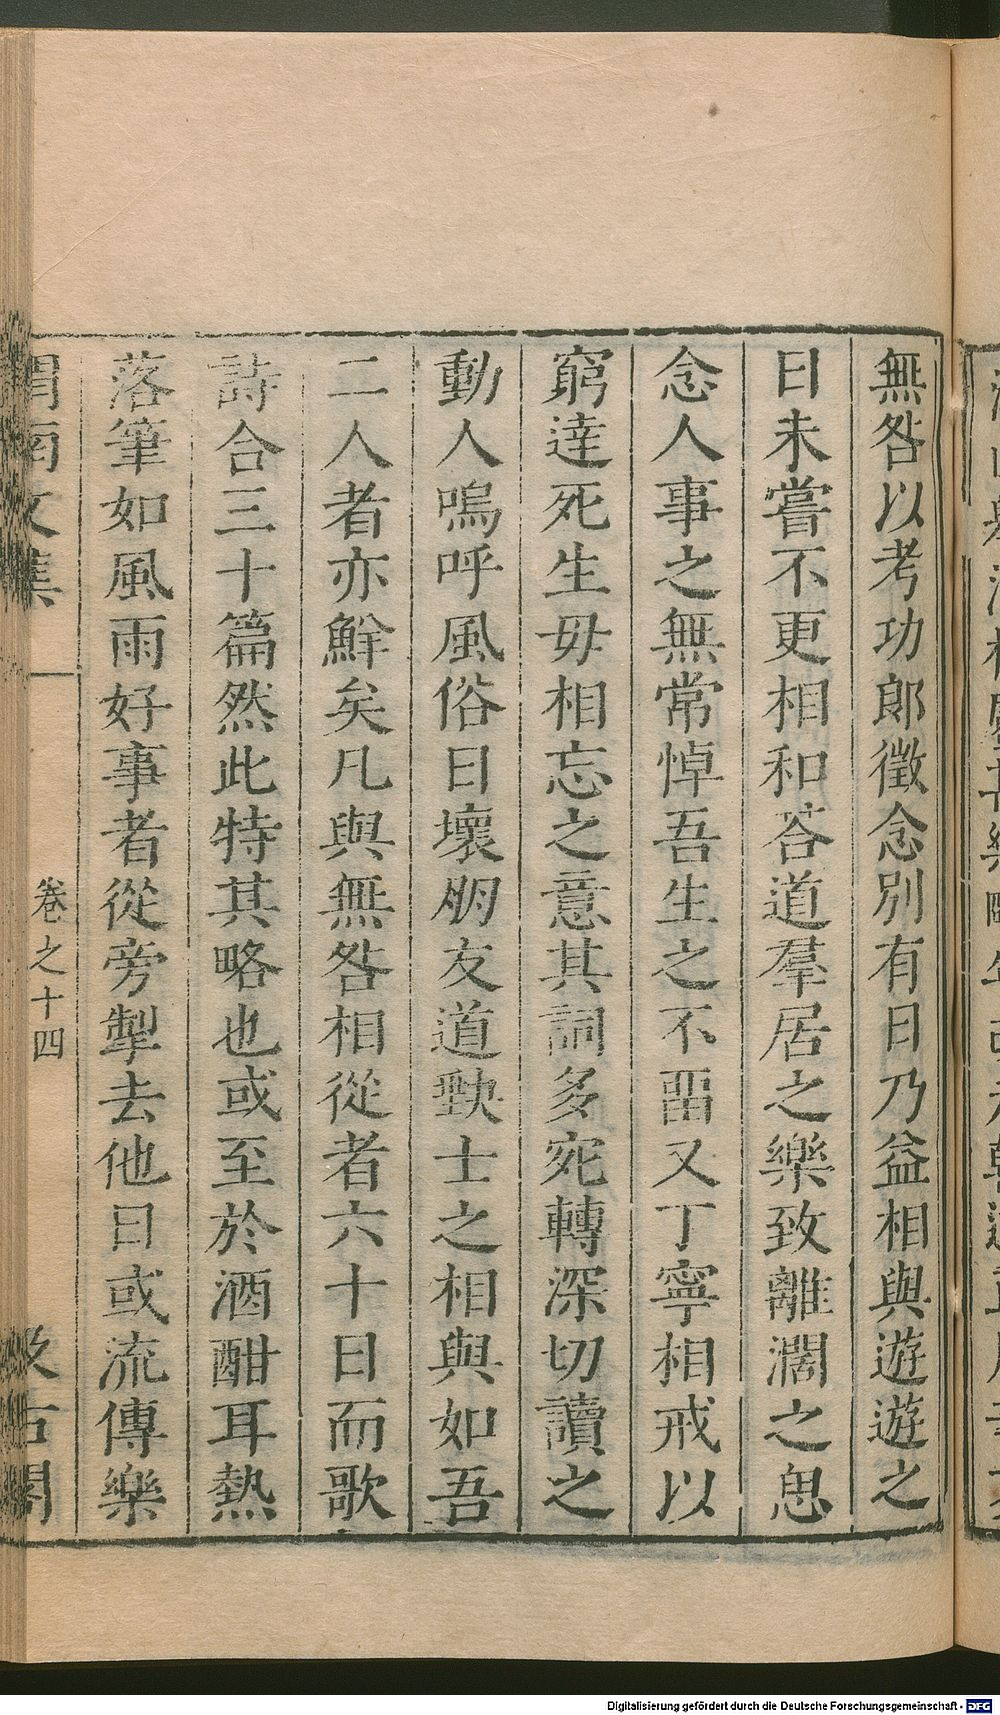 無咎以考功郎徵念別有日乃益相與遊遊之
日未嘗不更相和荅道羣居之樂致離濶之思
念人事之無常悼吾生之不畱又丁寧相戒以
窮達死生毋相忘之意其詞多宛轉深切讀之
動人嗚呼風俗日壞朋友道缺士之相與如吾
二人者亦鮮矣凡與無咎相從者六十日而歌
詩合三十篇然此特其略也或至於酒酣耳熱
落筆如風雨好事者從旁掣去他日或流傳樂
渭南文集 卷之十四 汲古閣
Digitalisierung gefördert durch die Deutsche Forschungsgemeinschaft - DFG